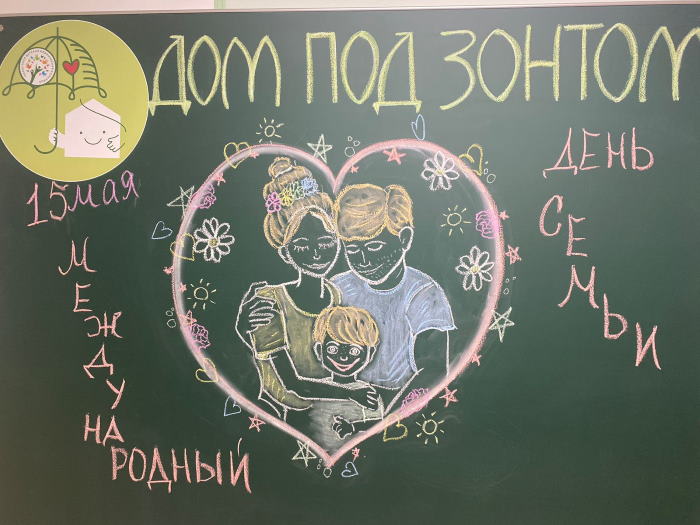 ДОМ ПОД ЗОНТОМ
15 мая
МЕЖДУНАРОДНЫЙ
ДЕНЬ
СЕМЬИ